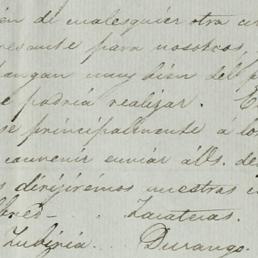 én de cualesquier otra
resante para nosotros,
tangan muy bien del p
e podria realizar. E
se principalmente á lo
convenir enviar á Vs. de
s dirijirémos nuestras c
bred- Zacatecas.
Zubiria. Durango.